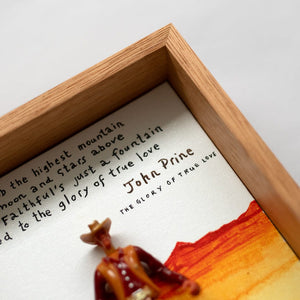 the highest mountain
moon and stars above
Faithful's just a fountain
to the glory of true love
John Prine
THE GLORY OF TRUE LOVE